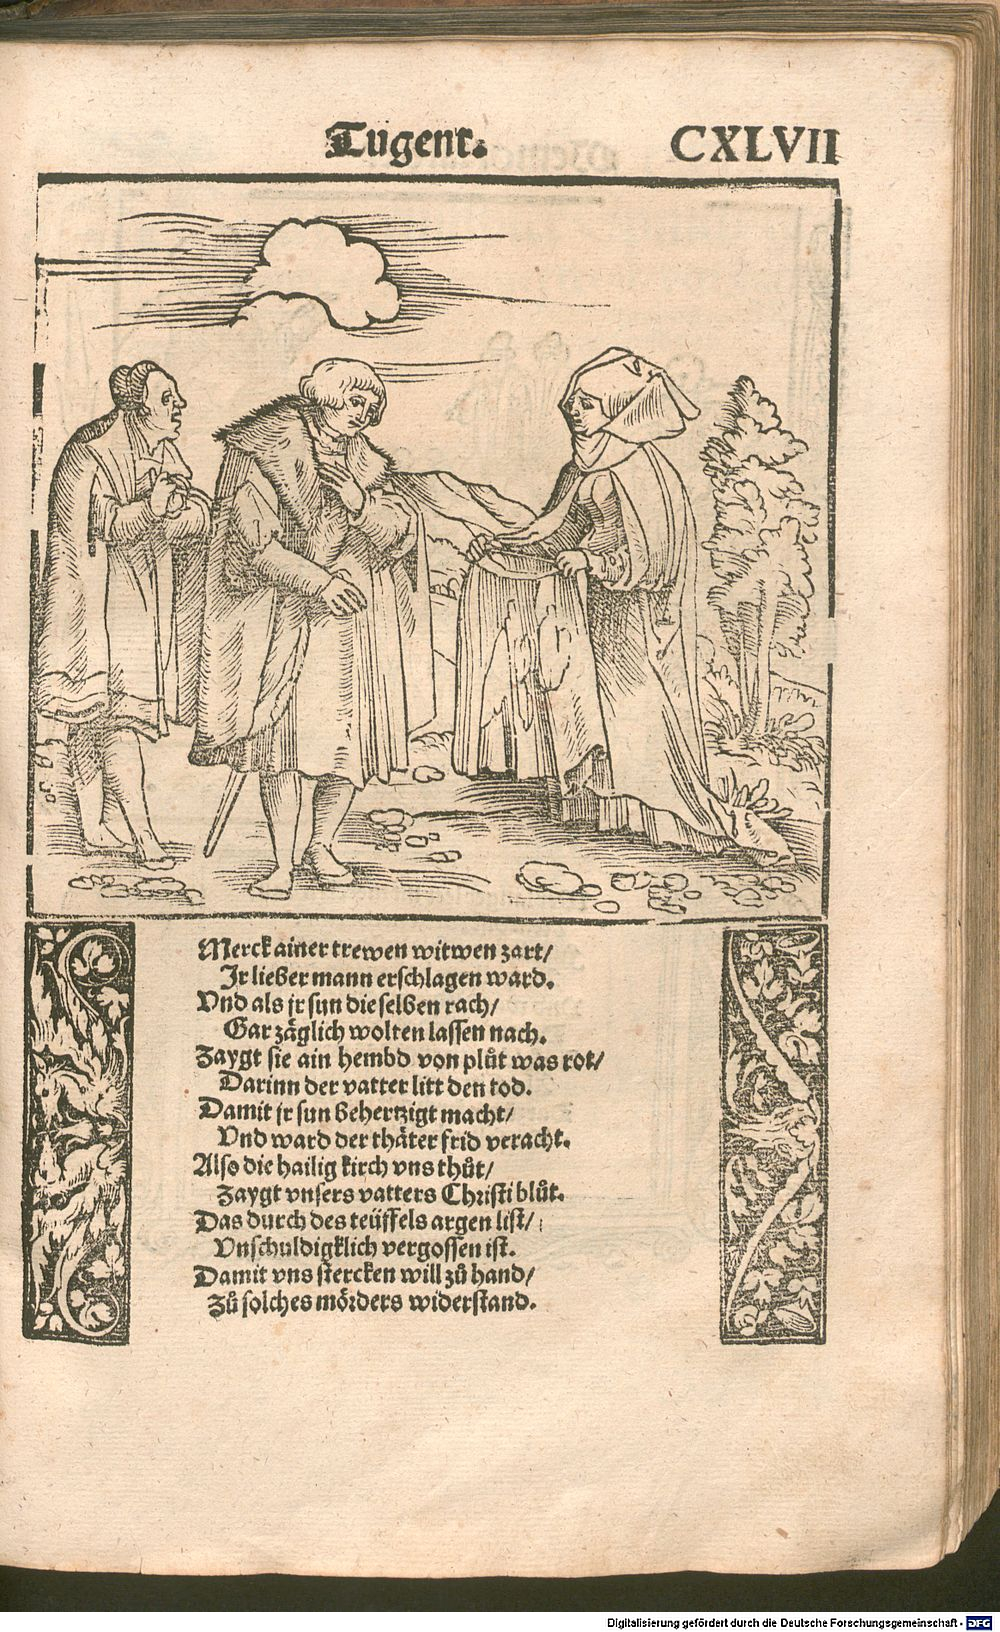 Tugent.
CXLVII
Merck ainer trewen witwen zart/
Ir lieber mann erschlagen ward.
Vnd als jr sun die selben rach/
Gar zäglich wolten lassen nach.
Zaygt sie ain hembd von plůt was rot/
Darinn der vatter litt den tod.
Damit jr sun behertzigt macht/
Vnd ward der thäter frid veracht.
Also die hailig kirch vns thůt/
Zaygt vnsers vatters Christi blůt.
Das durch des teüffels argen list/
Vnschuldigklich vergossen ist.
Damit vns stercken will zů hand/
Zů solches mörders widerstand.
Digitalisierung gefördert durch die Deutsche Forschungsgemeinschaft - DFG